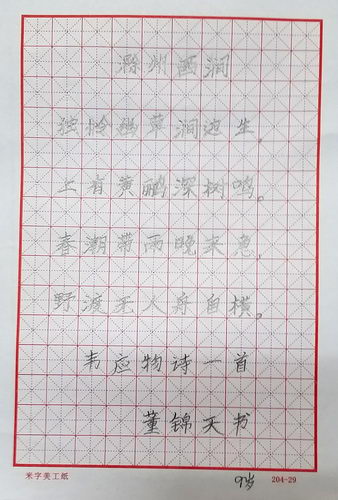 滁州西涧
独怜幽草涧边生。
上有黄鹂深树鸣。
春潮带雨晚来急,
野渡无人舟自横。
韦应物诗一首
董锦天书
9岁
米字美工纸 204-29